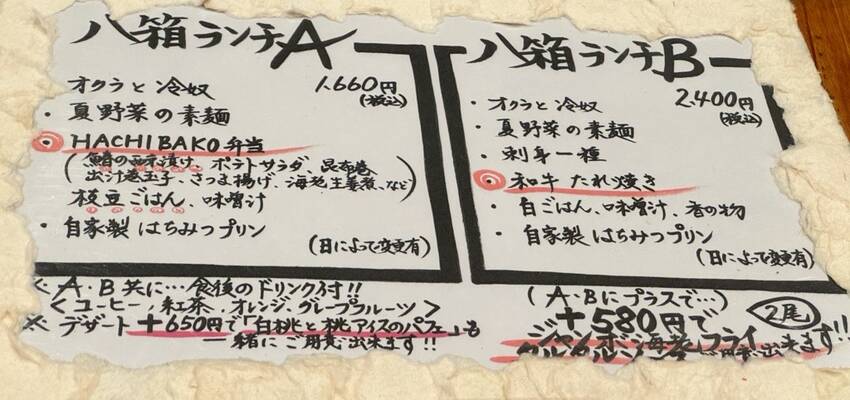 八箱ランチA
オクラと冷奴 1,660円
(税込)
・夏野菜の素麺
・HACHIBAKO弁当
(鯖の西京漬け、ポテトサラダ、昆布巻
出汁巻玉子、さつま揚げ、海老生姜煮、など)
枝豆ごはん、味噌汁
・自家製はちみつプリン
(日によって変更有)
八箱ランチB
・オクラと冷奴 2,400円
(税込)
・夏野菜の素麺
・刺身一種
・和牛たれ焼き
・白ごはん、味噌汁、香の物
・自家製はちみつプリン
(日によって変更有)
A・B共に…食後のドリンク付!!
<コーヒー、紅茶、オレンジ、グレープフルーツ>
※デザート+650円で「白桃と桃アイスのパフェ」も
一緒にご用意出来ます!!
(A・Bにプラスで…)
+580円で 2尾
ジャンボ海老フライ 出来ます!!